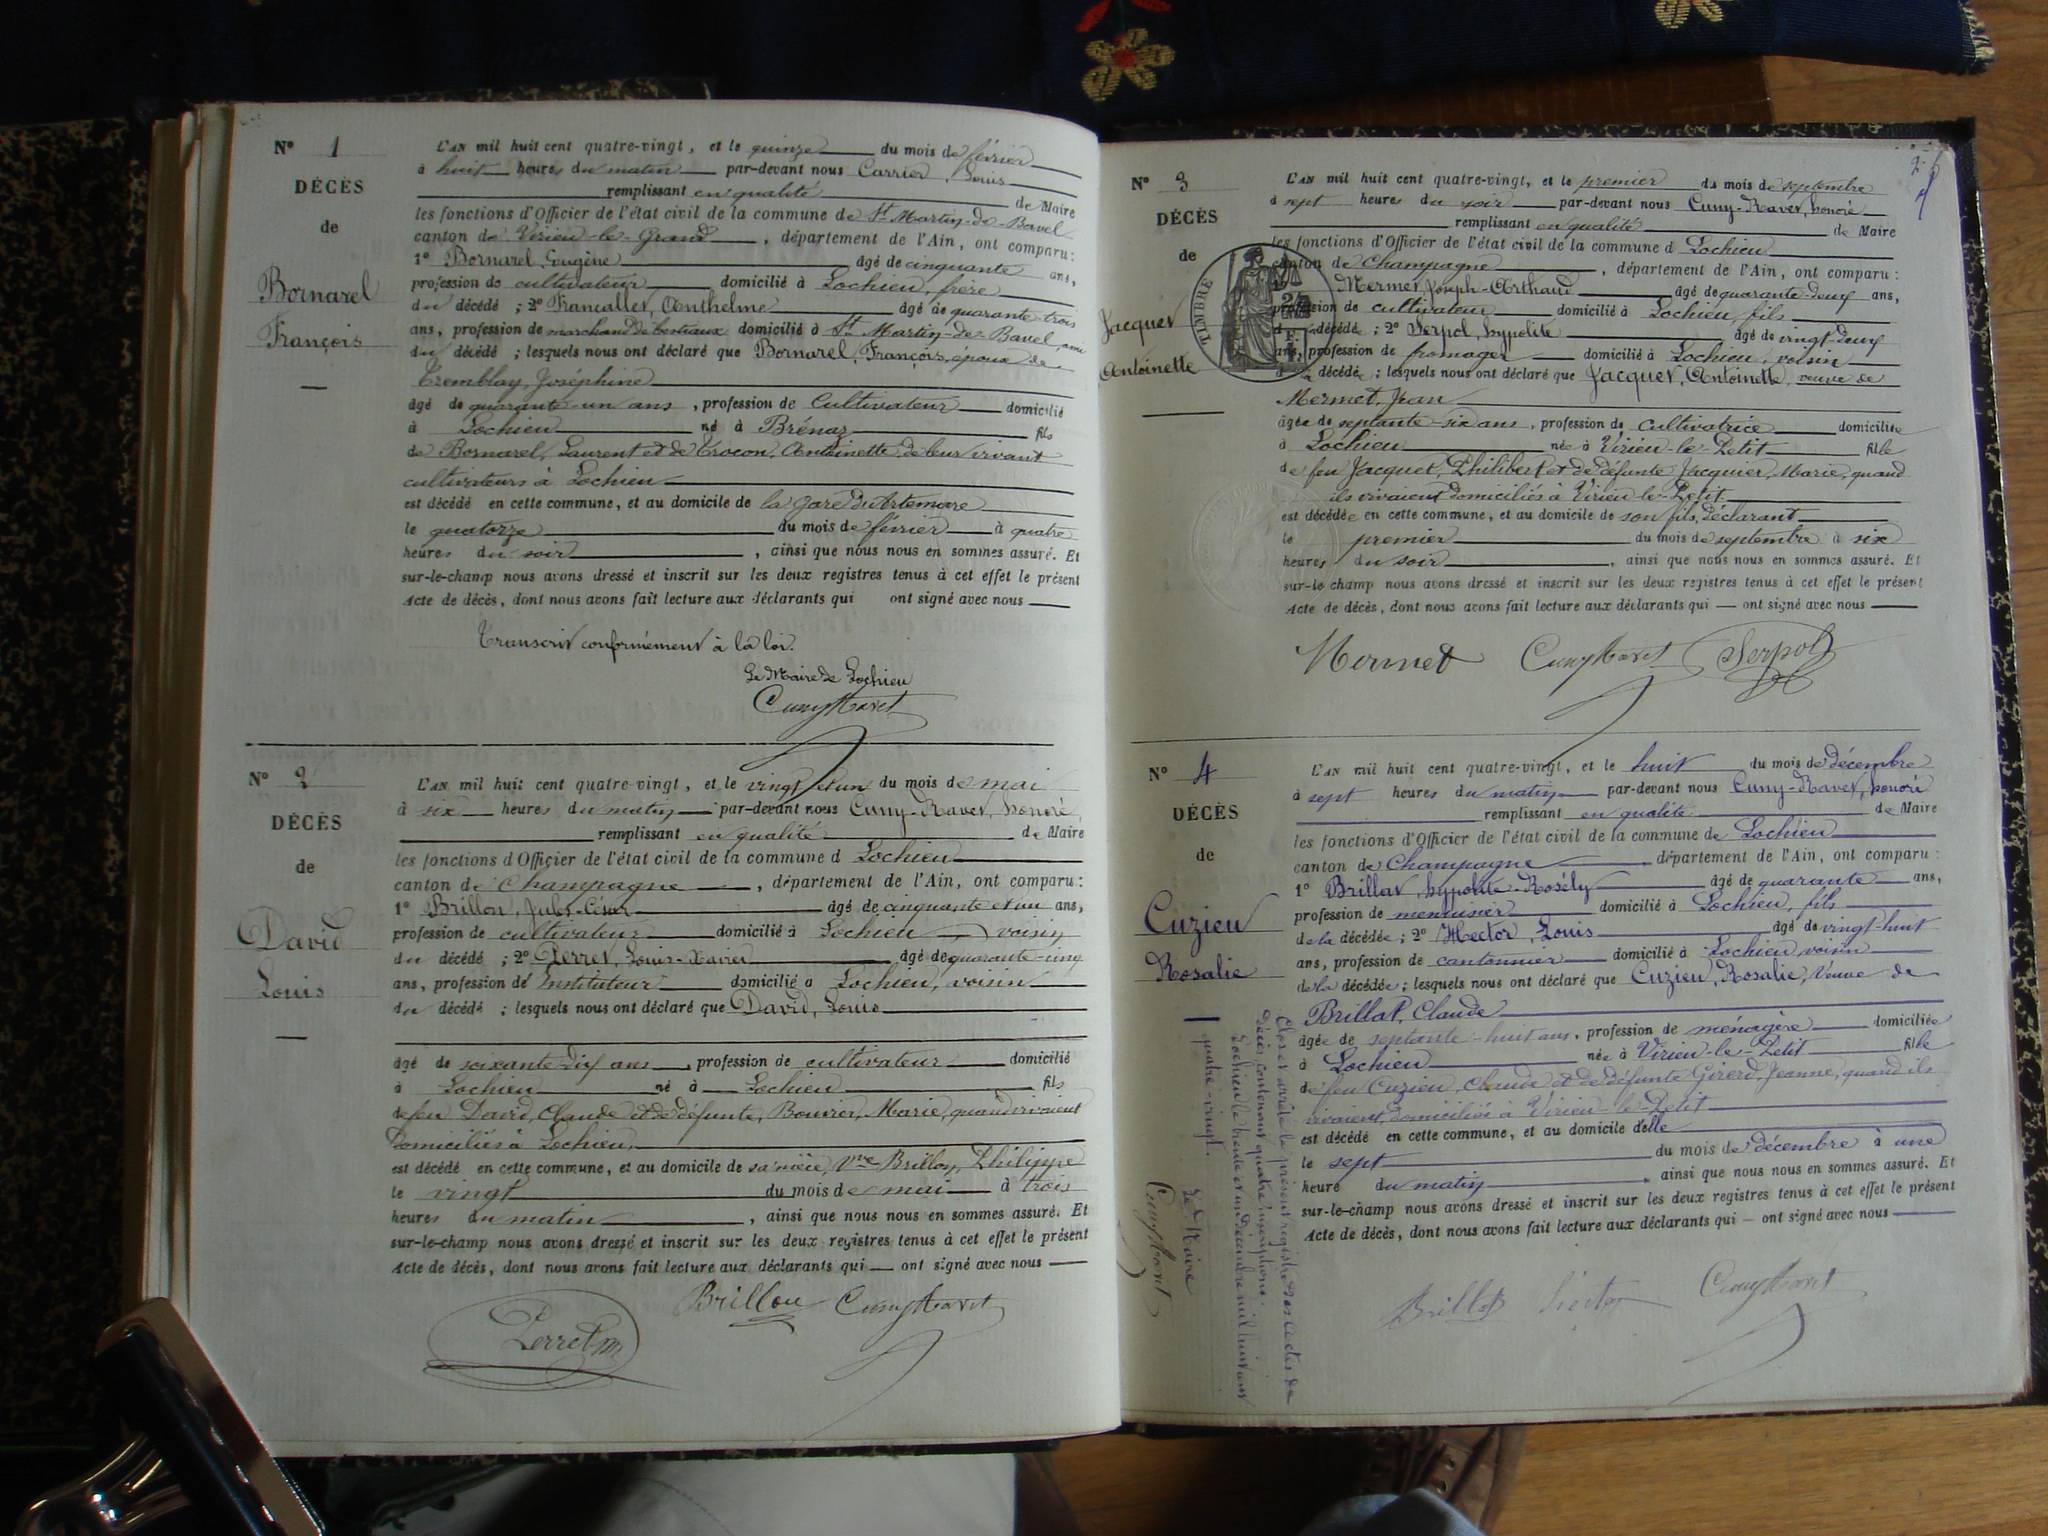 N° 1
DÉCÈS
de
Bornarel
François
L'AN mil huit cent quatre-vingt, et le quinze du mois de février
à huit heures du matin par-devant nous Carrier, Louis
remplissant en qualité de Maire
les fonctions d'Officier de l'état civil de la commune de St Martin-de-Bavel
canton de Virieu-le-Grand, département de l'Ain, ont comparu:
1° Bornarel, Eugène âgé de cinquante ans,
profession de cultivateur domicilié à Lochieu, frère
du décédé ; 2° Francallet, Anthelme âgé de quarante-trois
ans, profession de marchand de bestiaux domicilié à St Martin-de-Bavel, ami
du décédé ; lesquels nous ont déclaré que Bornarel, François, époux de
Tremblay, Joséphine
âgé de quarante-un ans, profession de Cultivateur domicilié
à Lochieu né à Brénaz fils
de Bornarel, Laurent et de Trocon, Antoinette de leur vivant
cultivateurs à Lochieu
est décédé en cette commune, et au domicile de la gare d'Artemare
le quatorze du mois de février à quatre
heures du soir, ainsi que nous nous en sommes assuré. Et
sur-le-champ nous avons dressé et inscrit sur les deux registres tenus à cet effet le présent
Acte de décès, dont nous avons fait lecture aux déclarants qui ont signé avec nous
Transcrit conformément à la loi.
Le Maire de Lochieu
Cuny Ravet
N° 2
DÉCÈS
de
David
Louis
L'AN mil huit cent quatre-vingt, et le vingt et un du mois de mai
à six heures du matin par-devant nous Cuny-Ravet, honoré,
remplissant en qualité de Maire
les fonctions d'Officier de l'état civil de la commune d Lochieu
canton de Champagne, département de l'Ain, ont comparu:
1° Brillon, Jules-César âgé de cinquante et un ans,
profession de cultivateur domicilié à Lochieu voisin
du décédé ; 2° Perret, Louis-Xavier âgé de quarante-cinq
ans, profession de Instituteur domicilié à Lochieu, voisin
du décédé ; lesquels nous ont déclaré que David, Louis
âgé de soixante-dix ans, profession de cultivateur domicilié
à Lochieu né à Lochieu fils
de feu David, Claude et de défunte, Bouvier, Marie, quand vivaient
domiciliés à Lochieu,
est décédé en cette commune, et au domicile de sa nièce, Vve Brillon, Philippe
le vingt du mois de mai à trois
heures du matin, ainsi que nous nous en sommes assuré. Et
sur-le-champ nous avons dressé et inscrit sur les deux registres tenus à cet effet le présent
Acte de décès, dont nous avons fait lecture aux déclarants qui — ont signé avec nous
Brillon Cuny Ravet
Perret
N° 3
DÉCÈS
de
Jacquet
Antoinette
TIMBRE
L'AN mil huit cent quatre-vingt, et le premier du mois de septembre
à sept heures du soir par-devant nous Cuny-Ravet, honoré
remplissant en qualité de Maire
les fonctions d'Officier de l'état civil de la commune d Lochieu
canton de Champagne, département de l'Ain, ont comparu:
Mermet Joseph-Arthaud âgé de quarante-deux ans,
profession de cultivateur domicilié à Lochieu, fils
décédée ; 2° Serpol, hypolite âgé de vingt-deux
ans, profession de fromager domicilié à Lochieu, voisin
décédée ; lesquels nous ont déclaré que Jacquet, Antoinette, veuve de
Mermet, Jean
âgée de septante-six ans, profession de cultivatrice domiciliée
à Lochieu née à Virieu-le-Petit fille
de feu Jacquet, Philibert et de défunte Jacquier, Marie, quand
ils vivaient domiciliés à Virieu-le-Petit
est décédée en cette commune, et au domicile de son fils, déclarant
le premier du mois de septembre à six
heures du soir, ainsi que nous nous en sommes assuré. Et
sur-le-champ nous avons dressé et inscrit sur les deux registres tenus à cet effet le présent
Acte de décès, dont nous avons fait lecture aux déclarants qui — ont signé avec nous
Mermet Cuny Ravet Serpol
N° 4
DÉCÈS
de
Cuzieu
Rosalie
L'AN mil huit cent quatre-vingt, et le huit du mois de décembre
à sept heures du matin par-devant nous Cuny-Ravet, honoré
remplissant en qualité de Maire
les fonctions d'Officier de l'état civil de la commune de Lochieu
canton de Champagne département de l'Ain, ont comparu:
1° Brillat, hypolite-Rosély âgé de quarante ans,
profession de menuisier domicilié à Lochieu, fils
de la décédée ; 2° Hector, Louis âgé de vingt-huit
ans, profession de cantonnier domicilié à Lochieu voisin
de la décédée ; lesquels nous ont déclaré que Cuzieu, Rosalie, Veuve de
Brillat, Claude
âgée de septante-huit ans, profession de ménagère domiciliée
à Lochieu née à Virieu-le-Petit fille
de feu Cuzieu, Claude et de défunte Girerd, Jeanne, quand ils
vivaient domiciliés à Virieu-le-Petit
est décédé en cette commune, et au domicile d'elle
le sept du mois de décembre à une
heure du matin, ainsi que nous nous en sommes assuré. Et
sur-le-champ nous avons dressé et inscrit sur les deux registres tenus à cet effet le présent
Acte de décès, dont nous avons fait lecture aux déclarants qui — ont signé avec nous
Brillat Hector Cuny Ravet
Clos et arrêté le présent registre des actes de
décès contenant quatre inscriptions.
Lochieu le trente et un décembre mil huit cent
quatre-vingt.
Le Maire
Cuny Ravet